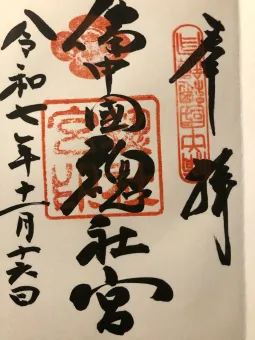 奉拝
備中國總社宮
令和七年十一月十六日